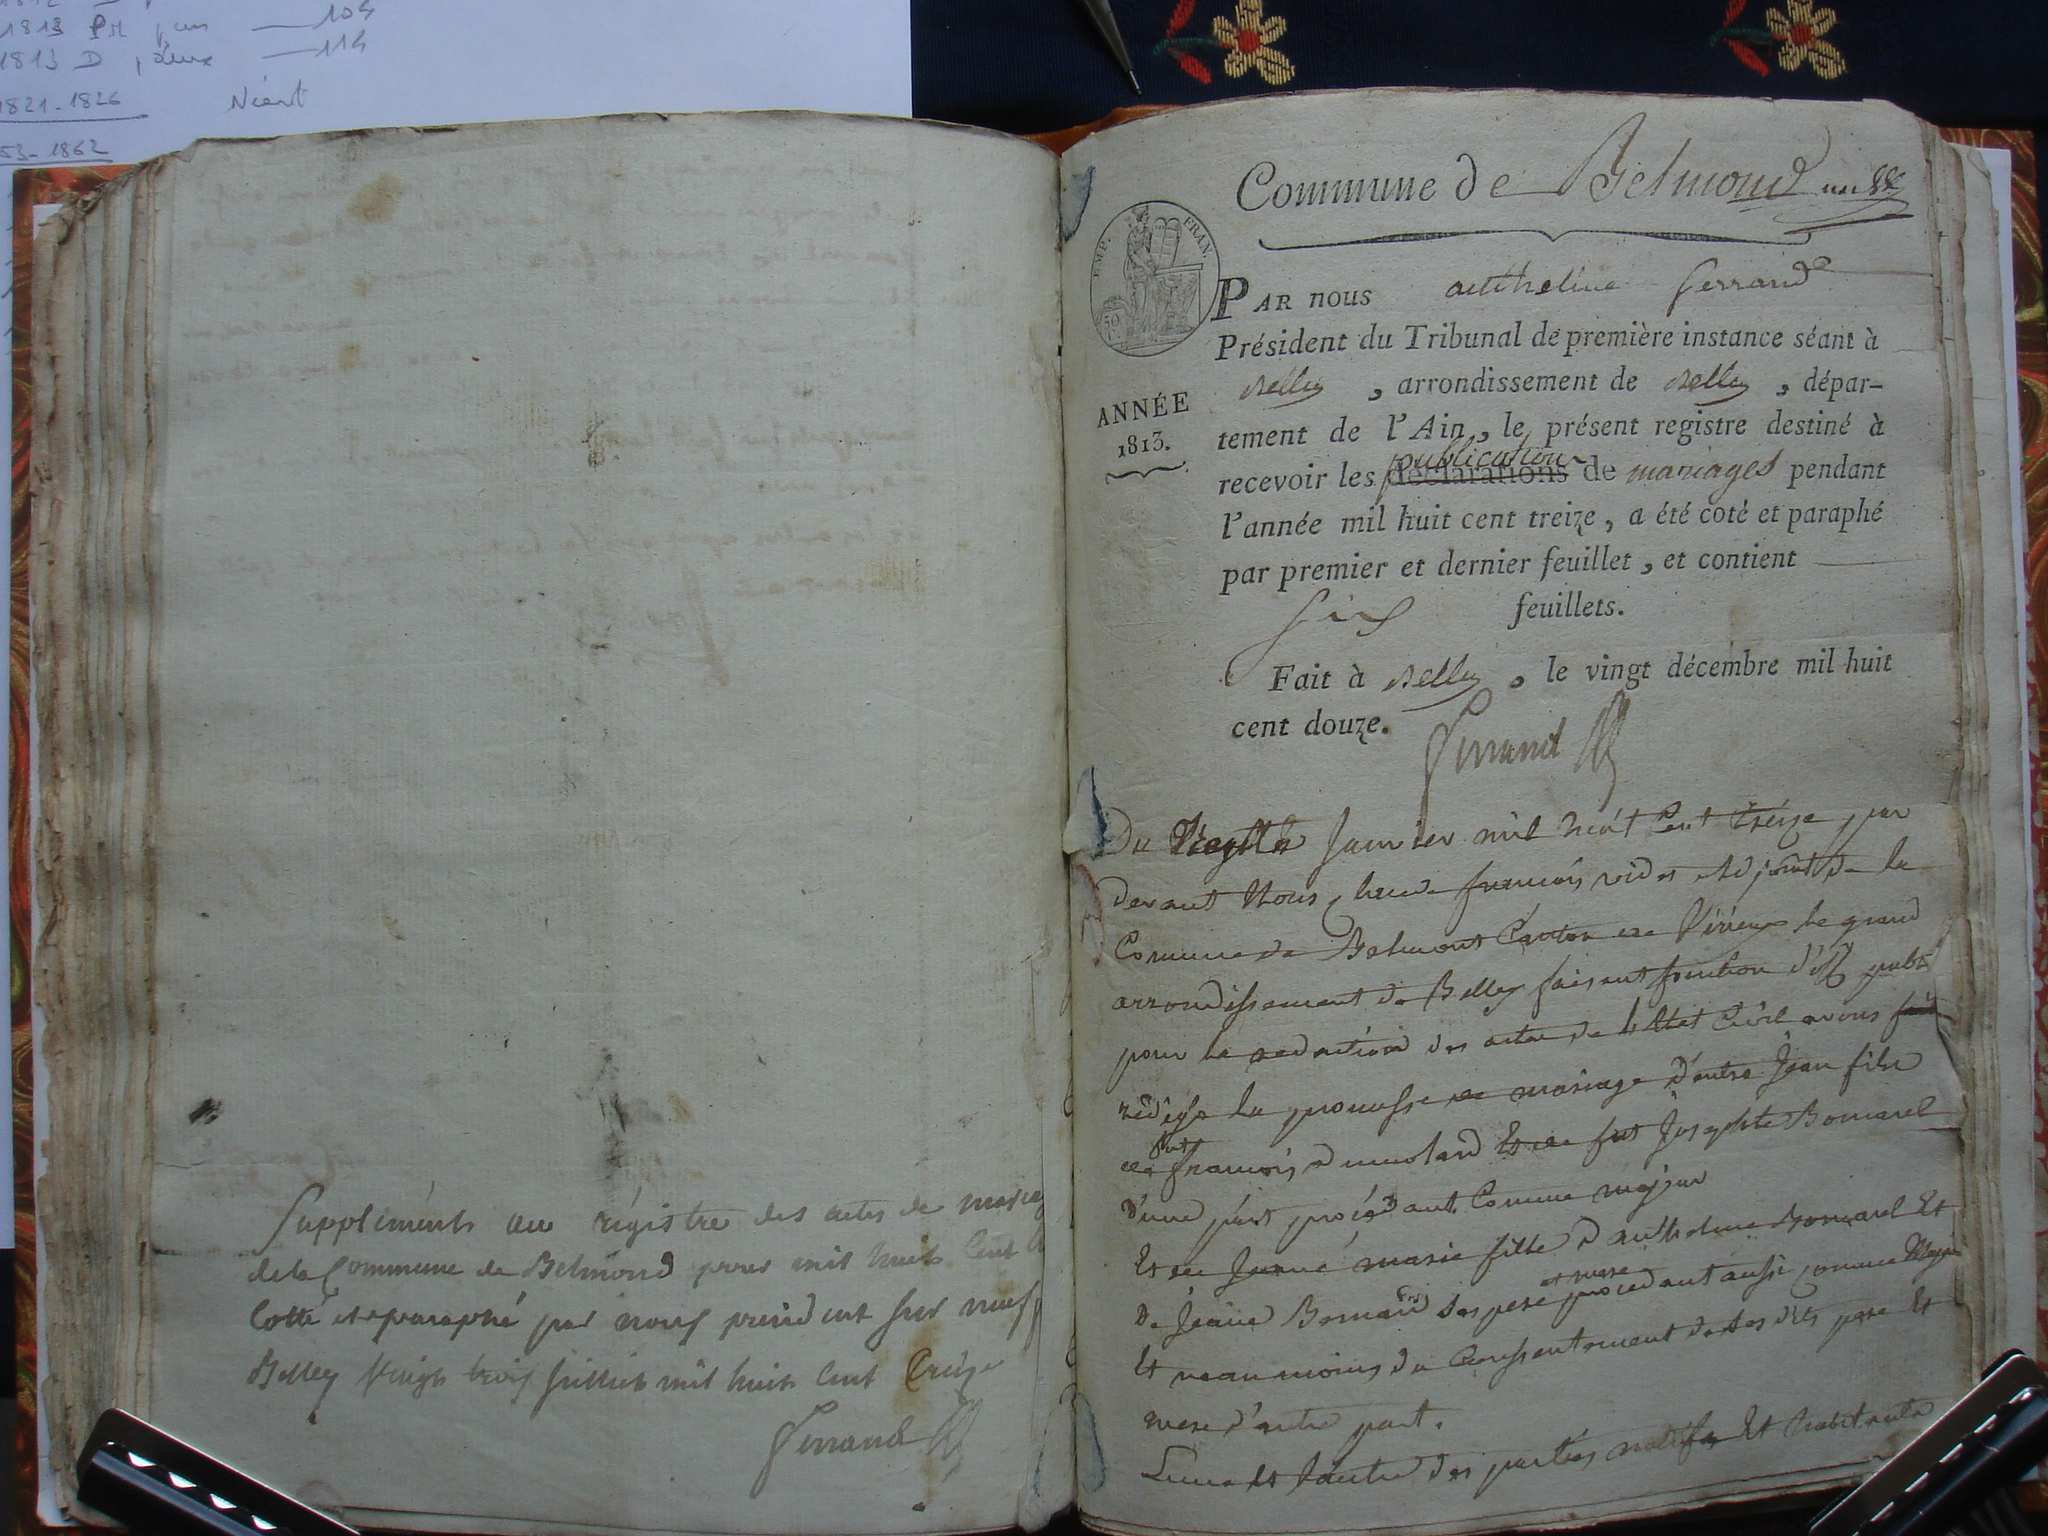 1813 PM, un — 104
1813 D, deux — 114
1821-1826 Néant
53-1862
Suppléments au régistre des actes de mariag
de la Commune de Belmond pour mil huit Cent
Cotté et paraphé par nous president sur neuf
Belley Vingt trois juillet mil huit Cent Treize
Ferrand
Commune de Belmond
EMP. FRAN.
50
PAR nous anthelme ferrand
Président du Tribunal de première instance séant à
Belley, arrondissement de Belley, dépar-
ANNÉE
1813.
tement de l'Ain, le présent registre destiné à
publication
recevoir les déclarations de mariages pendant
l'année mil huit cent treize, a été coté et paraphé
par premier et dernier feuillet, et contient
six feuillets.
Fait à Belley, le vingt décembre mil huit
cent douze. Ferrand
Du Janvier mil huit Cent treize, par
devant Nous, françois adjoint de la
Commune de Belmont Canton de Virieux le grand
arrondissement de Belley faisant fonction d'off publi
pour la redaction des actes de l'Etat Civil avons fait
rédigé la promesse de mariage d'entre Jean fils
de fut françois dumolard Et de fut Josephte Bonnarel
d'une part procédant Comme majeur
Et de Jeanne marie fille d'anthelme Bonnarel Et
De Jeanne ses pere et mere procedant aussi comme Majeu
Et neanmoins du Consentement de ses dits pere Et
mere d'autre part.
L'une et l'autre des parties natifs Et habitants